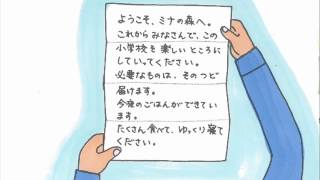 ようこそ、ミナの森へ。
これからみなさんで、この
小学校を楽しいところに
していってください。
必要なものは、そのつど
届けます。
今夜のごはんができてい
ます。
たくさん食べて、ゆっくり寝て
ください。